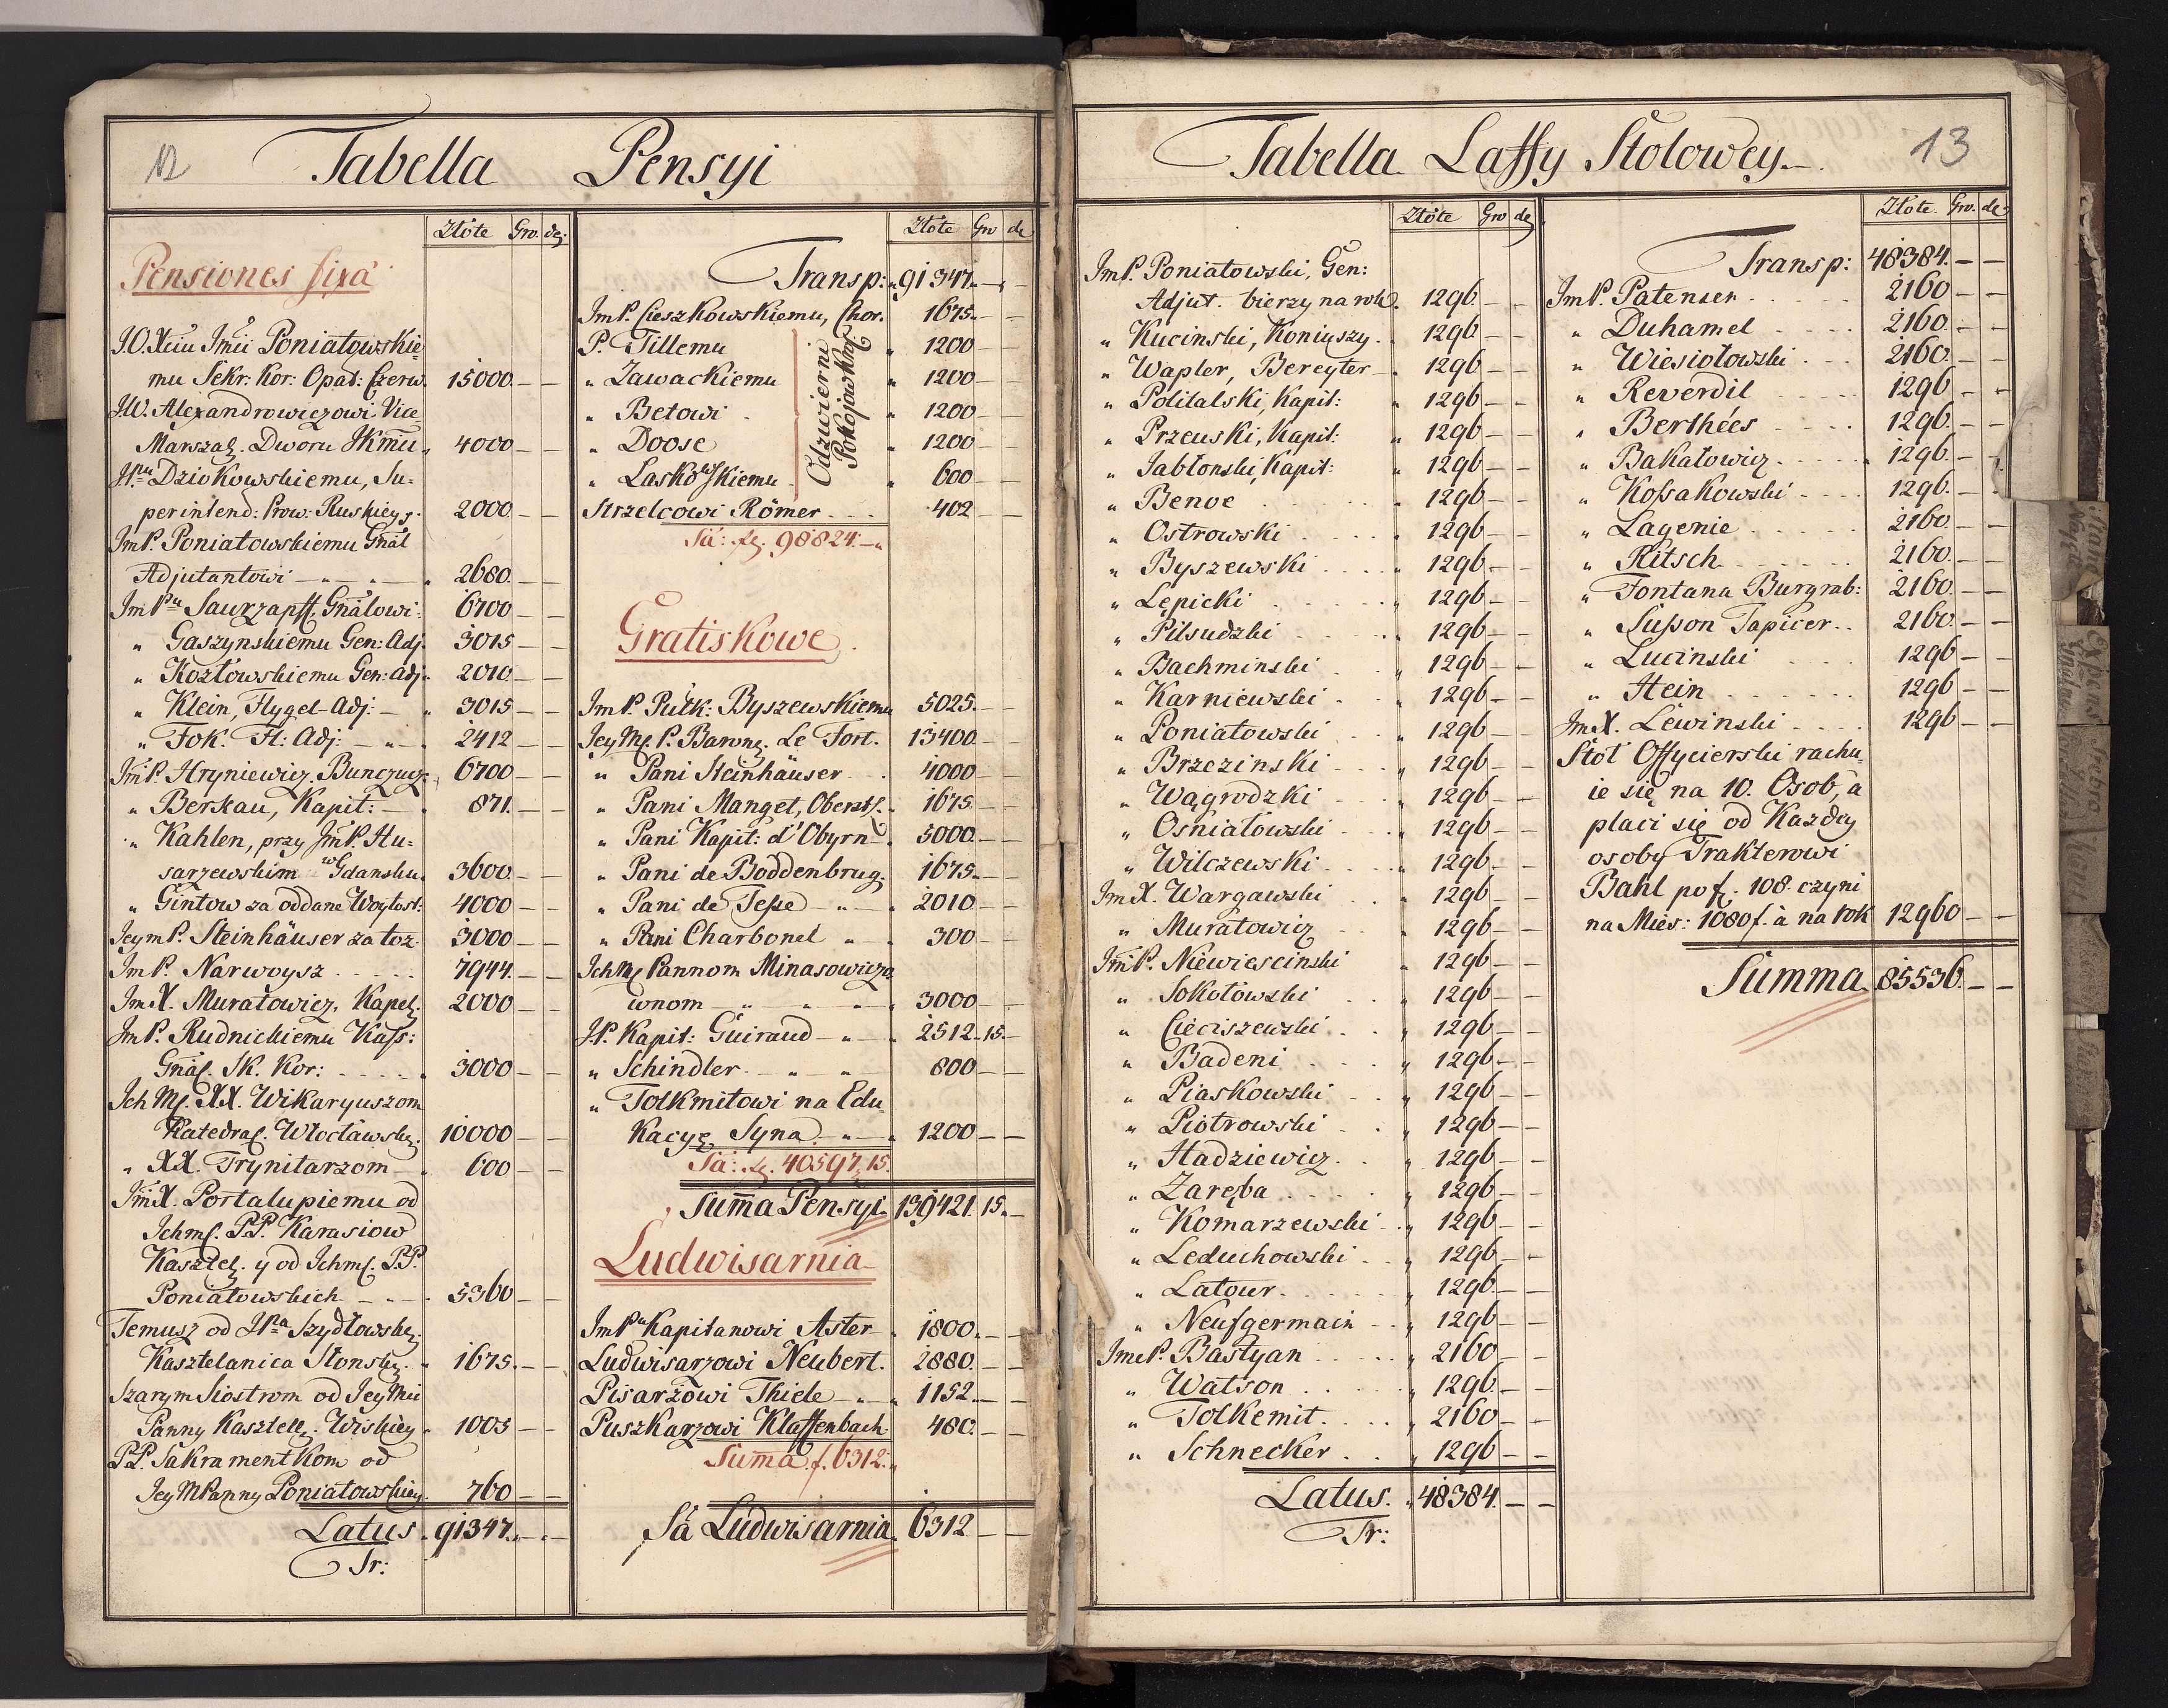 12
Tabella Pensyi
Złote Gro. de:
Pensiones fixa
J.O. Xciu Jmci Poniatowskie=
mu Sekr: Kor: Opat: Czerw. 15000.——
JW. Alexandrowiczowi Vice
Marszał. Dworu JKmci 4000——
JPu Dziokowskiemu, Su=
perintend: Prow: Ruskiey. 2000——
ImP. Poniatowskiemu Gnãł
Adjutantowi 2680.——
ImPu Saurzapff, Gnãłowi. 6700——
" Gaszynskiemu Gen: Adj. 3015——
" Kozłowskiemu Gen: Adj. 2010.——
" Klein, Flygel-Adj: 3015——
" Fok. Fl: Adj: 2412——
ImP. Hryniewicz. Bunczucz. 6700——
" Berskau, Kapit: 871.——
" Kahlen, przy JmP. Hu=
sarzewskim w Gdansku. 3600——
" Gintow za oddane Woytost: 4000——
JeymP. Steinhäuser za toz 3000——
ImP. Narwoysz 7944.——
ImX. Muratowicz, Kapel. 2000——
ImP. Rudnickiemu Kass:
Gnãł. Sk. Kor: 3000——
Ich Mć. XX. Wikaryuszom
Katedral. Włocławsk. 10000——
" XX. Trynitarzom 600——
ImX. Portalupiemu od
Ichmć. PP. Karasiow
Kasztel. y od Ichmć. P.P.
Poniatowskich 5360——
Temusz od JPa Szydłowsk.
Kasztelanica Słonsk. 1675.——
Szarym Siostrom od Jey Mci
Panny Kasztell. Wiskiey 1005——
PP. Sakramentkom od
Jey MPanny Poniatowskiey. 760——
Latus. 91347.——
Tr:
Złote Gro de
Transp: 91347.——
ImP. Cieszkowskiemu, Chor. 1675.——
P. Tillemu 1200——
" Zawackiemu 1200——
" Betowi 1200——
" Doose 1200——
" Laskowskiemu 600——
Odzwierni
Pokojowkoć
Strzelcowi Römer 402——
Sa: fl. 98824.—
Gratiskowe.
ImP. Pułk: Byszewskiemu 5025.——
Jey Mć. P. Barong. Le Fort. 13400——
" Pani Steinhäuser 4000——
" Pani Manget, Oberstl. 1675.——
" Pani Kapit: d'Obyrn 5000.——
" Pani de Boddenbrug. 1675.——
" Pani de Tesse 2010——
" Pani Charbonel 300——
IchMć Pannom Minasowiczo
wnom 3000——
JP. Kapit: Guiraud 2512.15.—
" Schindler 800——
" Tolkmitowi na Edu
Kacyę Syna 1200——
Sa: fl. 40597,15.
Suma Pensyi 139421.15.—
Ludwisarnia
ImPu Kapitanowi Aster 1800.——
Ludwisarzowi Neubert. 2880.——
Pisarzowi Thiele 1152.——
Puszkarzowi Klaffenbach 480.——
Suma f. 6312.
Sa Ludwisarnia. 6312——
13
Tabella Laffy Stołowey.
Złote Gro de
ImP. Poniatowski, Gen:
Adjut. bierzy na rok. 1296.——
" Kucinski, Koniuszy. 1296——
" Wapler, Bereyter 1296——
" Politalski, Kapit: 1296——
" Przeuski, Kapit: 1296——
" Jabłonski, Kapit: 1296——
" Benoe 1296——
" Ostrowski 1296——
" Byszewski 1296——
" Lępicki 1296——
" Piłsudzki 1296——
" Bachminski 1296——
" Karniewski 1296——
" Poniatowski 1296——
" Brzezinski 1296——
" Wągrodzki 1296——
" Ośniałowski 1296——
" Wilczewski 1296——
ImX. Wargawski 1296——
" Muratowicz 1296——
ImP. Niewiescinski 1296——
" Sokołowski 1296——
" Cieciszewski 1296——
" Badeni 1296——
" Piaskowski 1296——
" Piotrowski 1296——
" Hadziewicz 1296——
" Zaręba 1296——
" Komarzewski 1296——
" Leduchowski 1296——
" Latour 1296——
" Neufgermain 1296——
ImP. Bastyan 2160——
" Watson 1296.——
" Tolkemit 2160——
" Schnecker 1296——
Latus. 48384.——
Tr:
Złote. Gro. de
Transp: 48384.——
ImP. Patensen 2160——
" Duhamel 2160.——
" Wiesiołowski 2160.——
" Reverdil 1296——
" Berthées 1296.——
" Bakałowicz 1296.——
" Kossakowski 1296.——
" Lagenie 2160.——
" Ritsch 2160.——
" Fontana Burgrab: 2160.——
" Susson Tapicer 2160.——
" Lucinski 1296——
" Stein 1296——
ImX. Lewinski 1296——
Stół Offycierski rachu=
ie się na 10. Osob, a
placi się od Każdey
osoby Trakterowi
Bahl po f. 108. czyni
na Mies: 1080 f. à na rok 12960——
Summa 85536.——